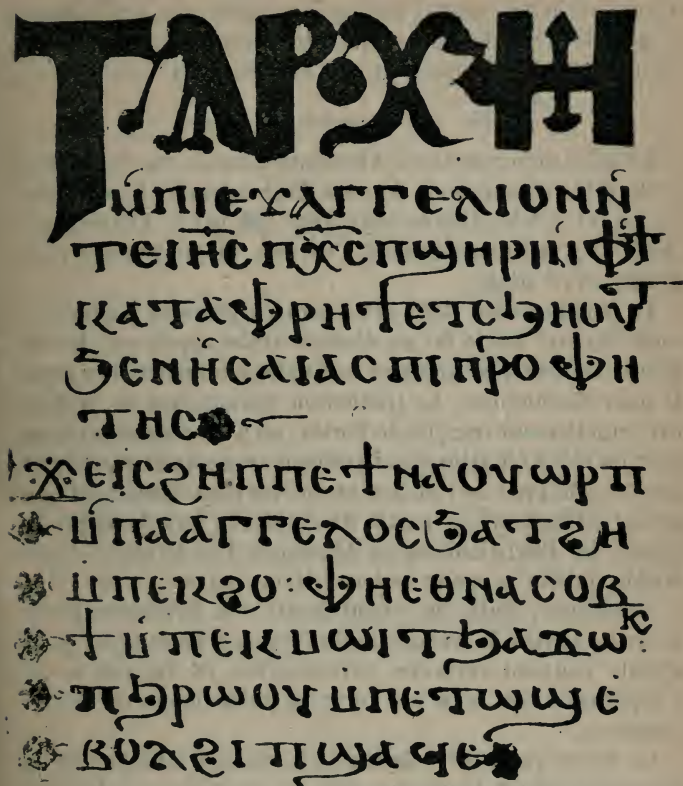 ⲦⲀⲢⲬⲎ
ⲙ̀ⲡⲓⲉⲩⲁⲅⲅⲉⲗⲓⲟⲛⲛ̀
ⲧⲉⲓⲏ̅ⲥ̅ⲡⲭ̅ⲥ̅ⲡϣⲏⲣⲓⲙ̀ⲫϯ
ⲕⲁⲧⲁⲫⲣⲏϯⲉⲧⲥϧⲏⲟⲩⲧ
ϧⲉⲛⲏ̀ⲥⲁⲓⲁⲥⲡⲓⲡⲣⲟⲫⲏ
ⲧⲏⲥ
ϫⲉⲓⲥϩⲏⲡⲡⲉϯⲛⲁⲟⲩⲱⲣⲡ
ⲙ̀ⲡⲁⲁⲅⲅⲉⲗⲟⲥϧⲁⲧϩⲏ
ⲙ̀ⲡⲉⲕϩⲟ: ⲫⲏⲉⲑⲛⲁⲥⲟⲃ
ϯⲙ̀ⲡⲉⲕⲙⲱⲓⲧϧⲁϫⲱⲕ:
ⲡϧⲣⲱⲟⲩⲙⲡⲉⲧⲱϣⲉ
ⲃⲟⲗϩⲓⲡϣⲁϥⲉ